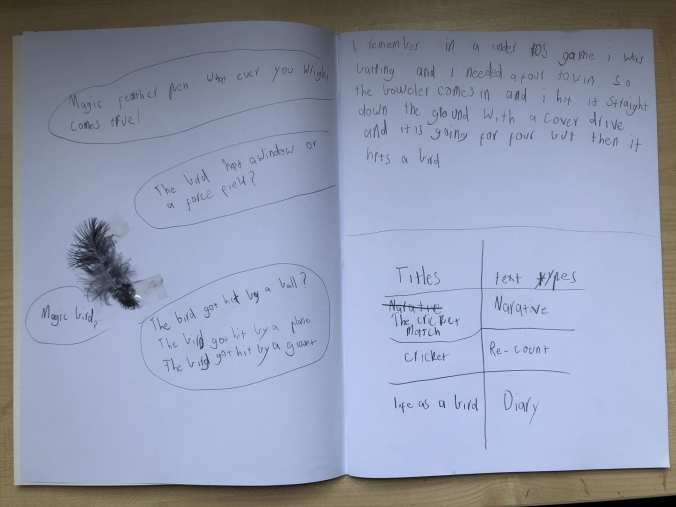 Magic feather pen what ever you wright
comes true!
The bird hit a window or
a force field?
Magic bird?
The bird got hit by a ball?
The bird got hit by a plane
The bird got hit by a giant
I remember in a under 10s game i was
batting and I needed a four to win so
the bowler comes in and i hit it straight
down the ground with a cover drive
and it is going for four but then it
hits a bird
Titles text types
Narative
The cricket
Match Narative
cricket Re-count
life as a bird Diary